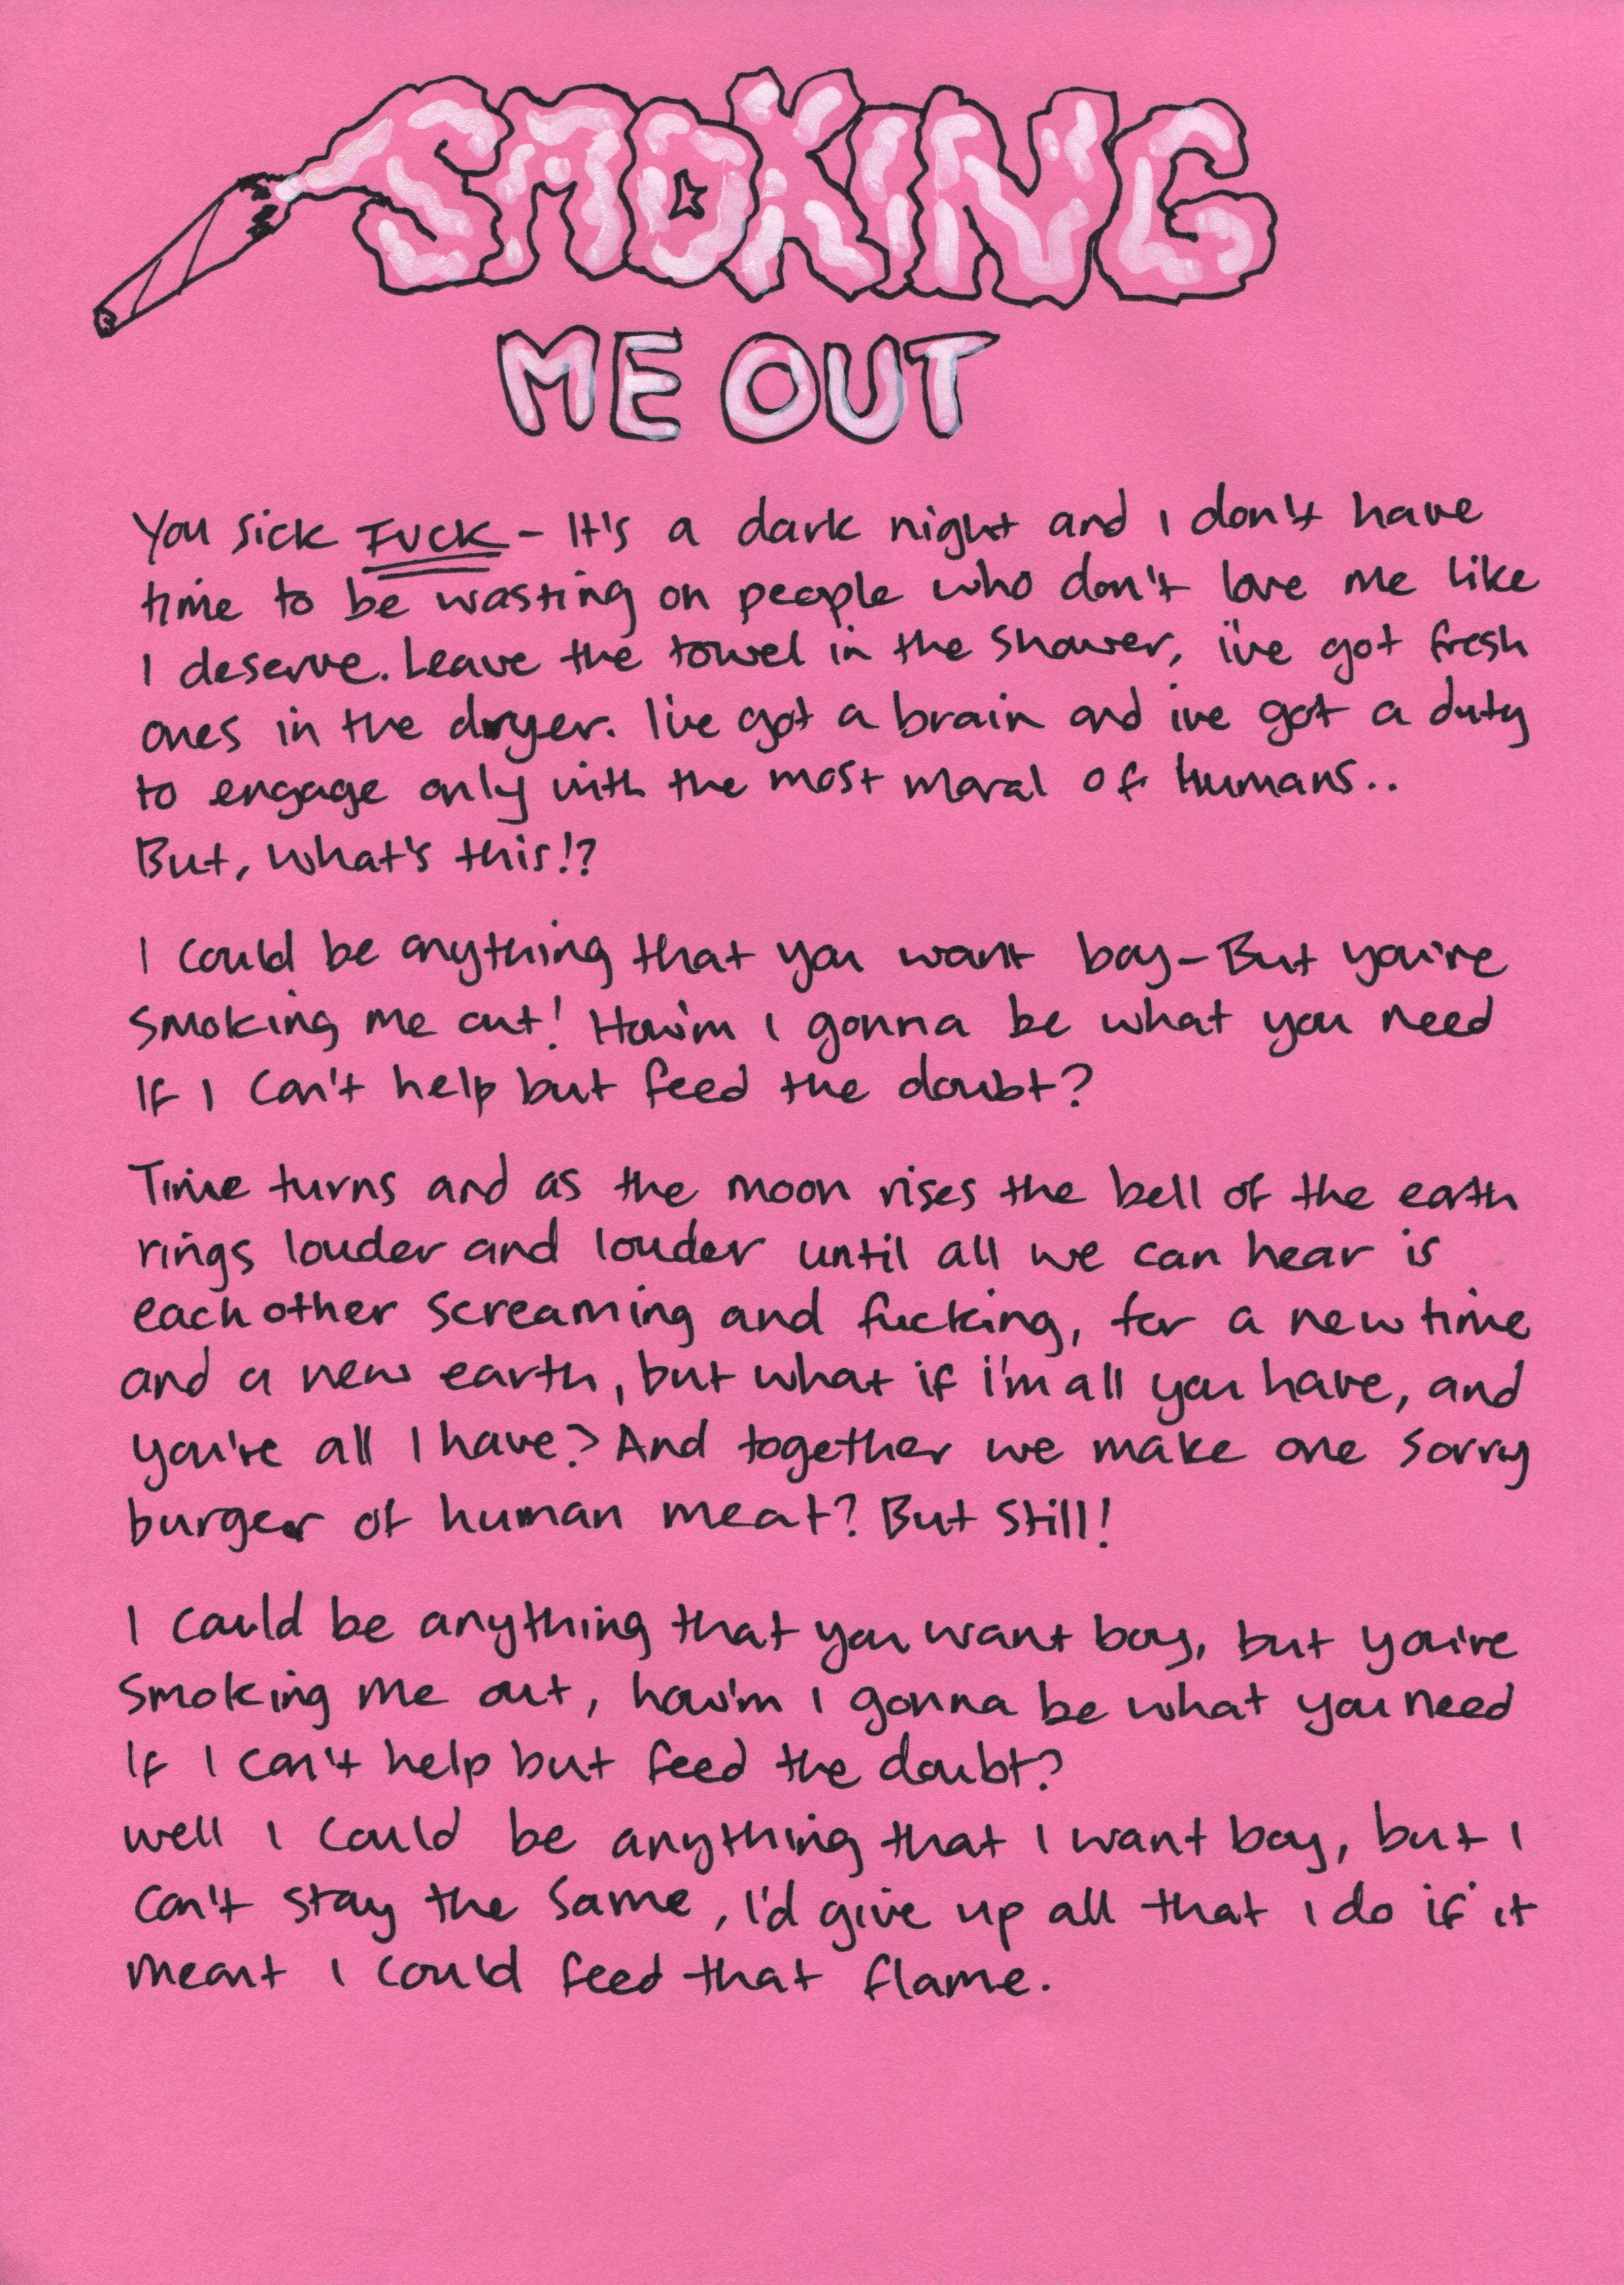 SMOKING
ME OUT
You sick FUCK - It's a dark night and I don't have
time to be wasting on people who don't love me like
I deserve. Leave the towel in the shower, i've got fresh
ones in the dryer. I've got a brain and ive got a duty
to engage only with the most moral of humans..
But, what's this!?
I could be anything that you want boy - But you're
smoking me out! How'm I gonna be what you need
If I can't help but feed the doubt?
Time turns and as the moon rises the bell of the earth
rings louder and louder until all we can hear is
each other screaming and fucking, for a new time
and a new earth, but what if i'm all you have, and
you're all I have? And together we make one sorry
burger of human meat? But still!
I could be anything that you want boy, but you're
smoking me out, how'm I gonna be what you need
If I can't help but feed the doubt?
well I could be anything that I want boy, but I
can't stay the same, I'd give up all that I do if it
meant I could feed that flame.